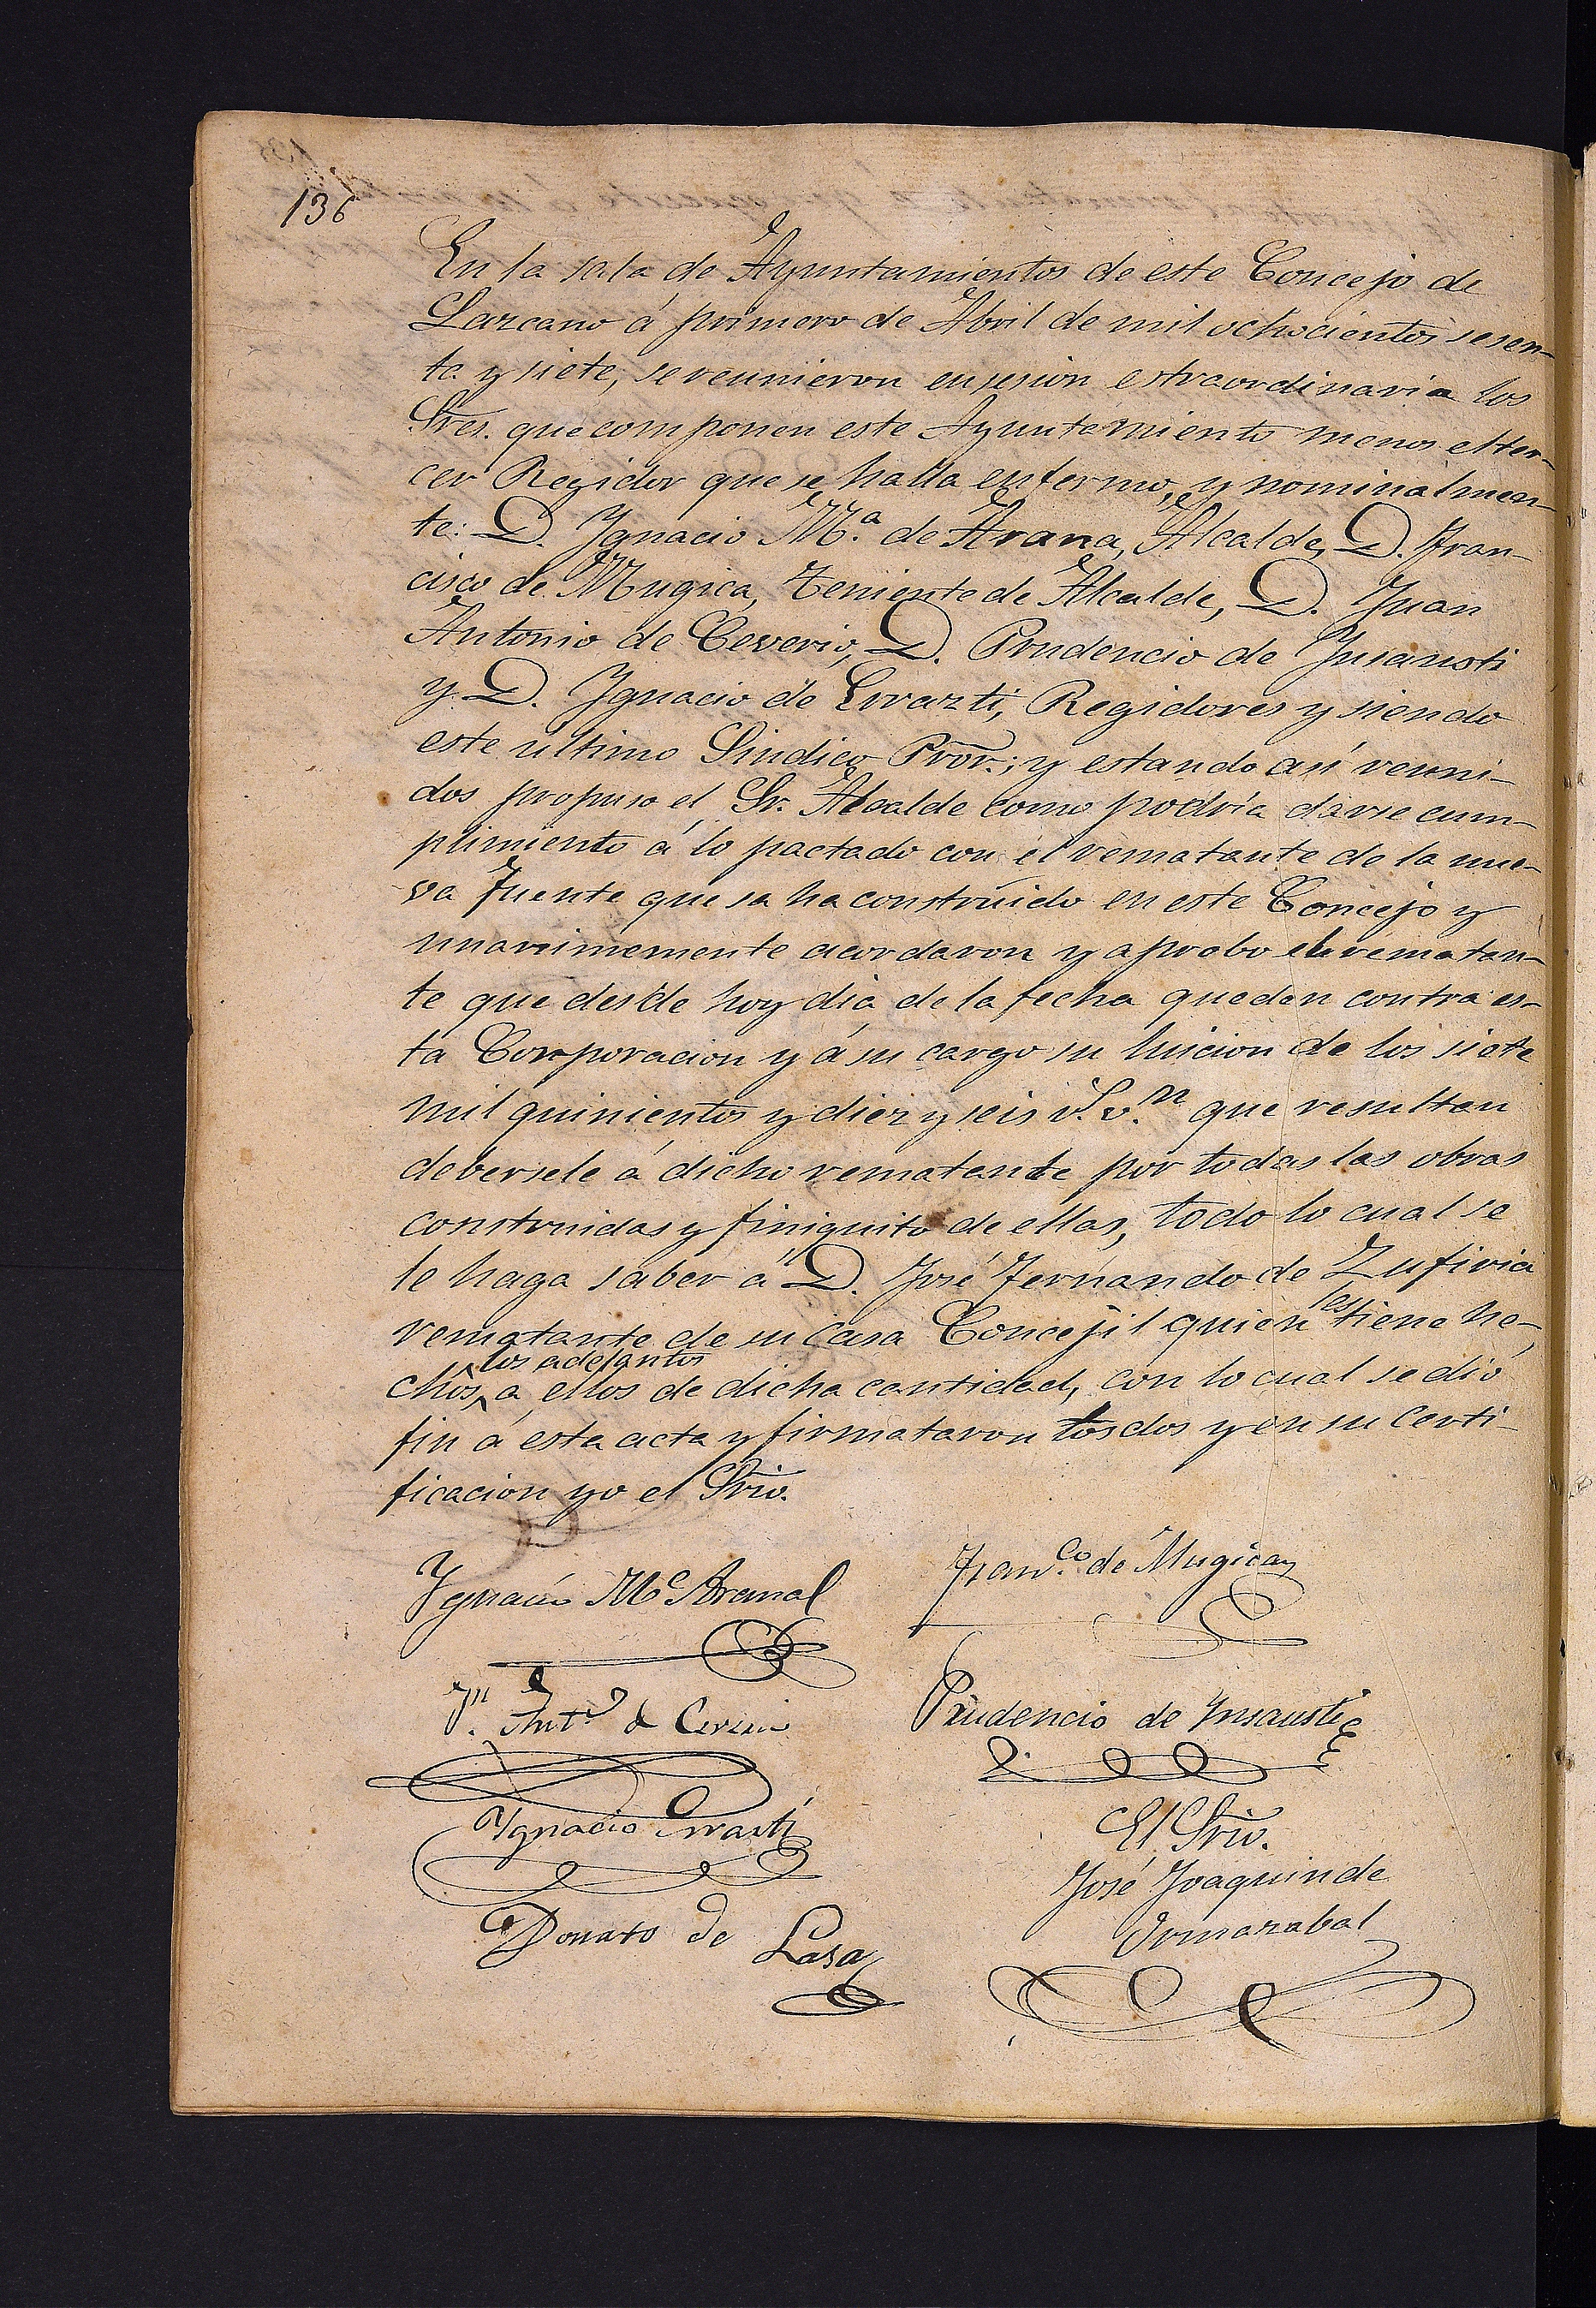 136
En la sala de Ayuntamientos de este Concejo de
Lazcano á primero de Abril de mil ochocientos sesen-
ta y siete, se reunieron en sesion estraordinaria los
Sres. que componen este Ayuntamiento menos el ter-
cer Regidor que se halla enfermo, y nominalmen-
te: D. Ygnacio M.a de Arana, Alcalde, D. Fran-
cisco de Mugica, Teniente de Alcalde, D. Juan
Antonio de Ceverio, D. Prudencio de Insausti
y D. Ygnacio de Errazti, Regidores y siendo
este ultimo Sindico Pror.; y estando así reuni-
dos propuso el Sr. Alcalde como podría darse cum-
plimiento á lo pactado con el rematante de la nue-
va fuente que sa ha construido en este Concejo y
unanimemente acordaron y aprobo el rematan-
te que desde hoy dia de la fecha queden contra es-
ta Corporacion y á su cargo su luicion de los siete
mil quinientos y diez y seis r.s v.n que resultan
debersele á dicho rematante por todas las obras
construidas y finiquito de ellas, todo lo cual se
le haga saber á D. José Fernando de Zufiria
rematante de su Casa Concejil quien les tiene he-
chos los adelantos a ellos de dicha cantidad, con lo cual se dió
fin á esta acta y firmataron los dos y en su certi-
ficacion yo el Srio.
Ygnacio M.a Arana
Fran.co de Mugica
J.n Ant.o de Ceverio
Prudencio de Insausti
Ygnacio Errasti
El Srio.
José Joaquin de
Ormazabal
Donato de Lasa